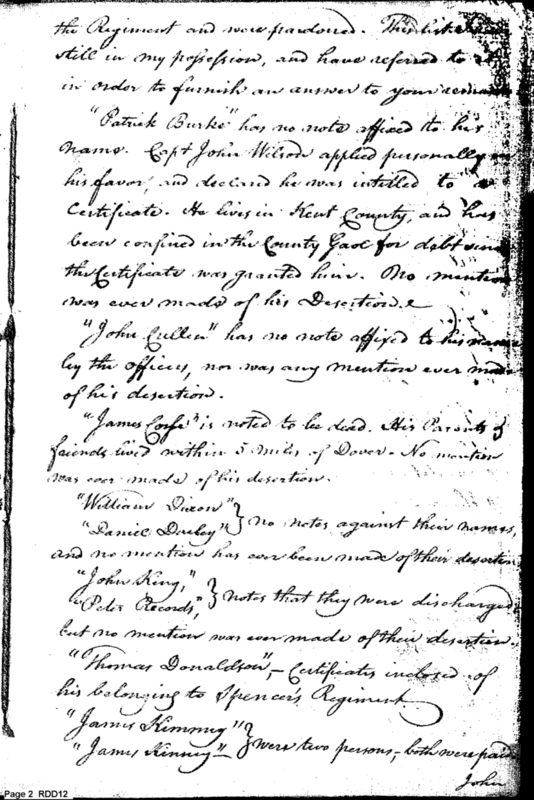 the Regiment and were pardoned. This list
still in my possession, and have referred to it
in order to furnish an answer to your remarks
"Patrick Burke" has no note affixed to his
name. Capt John Wilson applied personally in
his favor, and declared he was intitled to a
Certificate. He lives in Kent County, and has
been confined in the County Gaol for debt since
the Certificate was granted him. No mention
was ever made of his Desertion.
"John Cullin" has no note affixed to his name
by the officers, nor was any mention ever made
of his desertion.
"James Corse" is noted to be dead. His Parents &
friends lived within 5 miles of Dover. No mention
was ever made of his desertion.
"William Dixon"
"Daniel Durley" } no notes against their names,
and no mention has ever been made of their desertion
"John King,"
"Peter Records," } notes that they were discharged
but no mention was ever made of their desertion.
"Thomas Donaldson",— Certificates inclosed of
his belonging to Spencer's Regiment
"James Kimmey"
"James Kinney" } were two persons,— both were paid
John
Page 2 RDD12